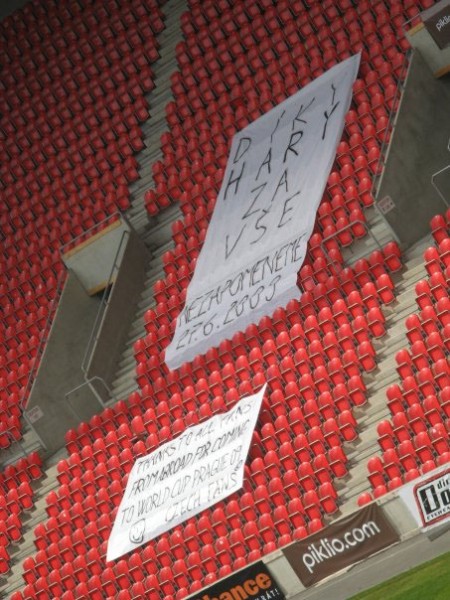 DÍKY
HARY
ZA
VŠE
NEZAPOMENEME
27.6.2009
THANKS TO ALL FANS
FROM ABROAD FOR COMING
TO WORLD CUP PRAGUE 09
CZECH FANS
piklio.com